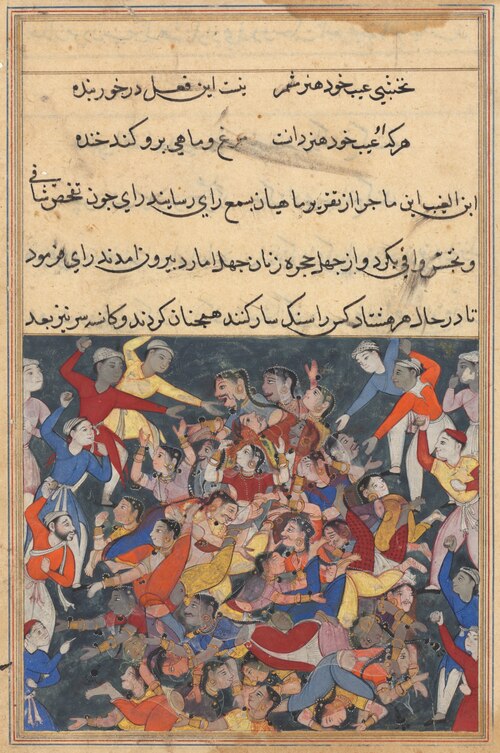 نخشبی عیب خود هنر مشمر نیست این فعل در خور بنده
هر که او عیب خود هنر دانست مرغ و ماهی برو کند خنده
ابن الغیب این ماجرا از تقریر ماهیان بسمع رای رسانید رای چون تفحص شافی
و تجسس وافی بکرد و از چهل حجره زنان چهل امارد بیرون آمدند رای فرمود
تا در حال هر هشتاد کس را سنکسار کنند همچنان کردند و کاسه سر نیز بعد